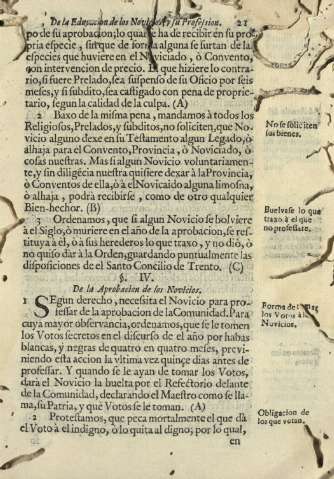 De la Educacion de los Novicios, y su Profession. 21
po de su aprobacion; lo qual se ha de recibir en su pro-
pria especie, sin que de forma alguna se surtan de las
especies que huviere en el Noviciado, ò Convento,
con intervencion de precio. El que hiziere lo contra-
rio, si fuere Prelado, sea suspenso de su Oficio por seis
meses, y si subdito, sea castigado con pena de proprie-
tario, segun la calidad de la culpa. (A)
2 Baxo de la misma pena, mandamos à todos los
Religiosos, Prelados, y subditos, no soliciten, que No-
vicio alguno dexe en su Testamento algun Legado, ò
alhaja para el Convento, Provincia, ò Noviciado, ò
cosas nuestras. Mas si algun Novicio voluntariamen-
te, y sin diligẽcia nuestra quisiere dexar à la Provincia,
ò Conventos de ella, ò à el Noviciado alguna limosna,
ò alhaja, podrà recibirse, como de otro qualquier
Bien-hechor. (B)
No se soliciten
sus bienes.
3 Ordenamos, que si algun Novicio se bolviere
à el Siglo, ò muriere en el año de la aprobacion, se res-
tituya à èl, ò à sus herederos lo que traxo, y no diò, ò
no quiso dàr à la Orden, guardando puntualmente las
disposiciones de el Santo Concilio de Trento. (C)
Buelvase lo que
traxo à el que
no professare.
§. IV.
De la Aprobacion de los Novicios.
1 Segun derecho, necessita el Novicio para pro-
fessar de la aprobacion de la Comunidad. Para
cuya mayor observancia, ordenamos, que se le tomen
los Votos secretos en el discurso de el año por habas
blancas, y negras de quatro en quatro meses, previ-
niendo esta accion la vltima vez quinçe dias antes de
professar. Y quando se le ayan de tomar los Votos,
darà el Novicio la buelta por el Refectorio delante
de la Comunidad, declarando el Maestro como se lla-
ma, su Patria, y què Votos se le toman. (A)
Forma de tomar
los Votos à los
Novicios.
2 Protestamos, que peca mortalmente el que dà
el Voto à el indigno, ò lo quita al digno; por lo qual,
Obligacion de
los que votan.
en